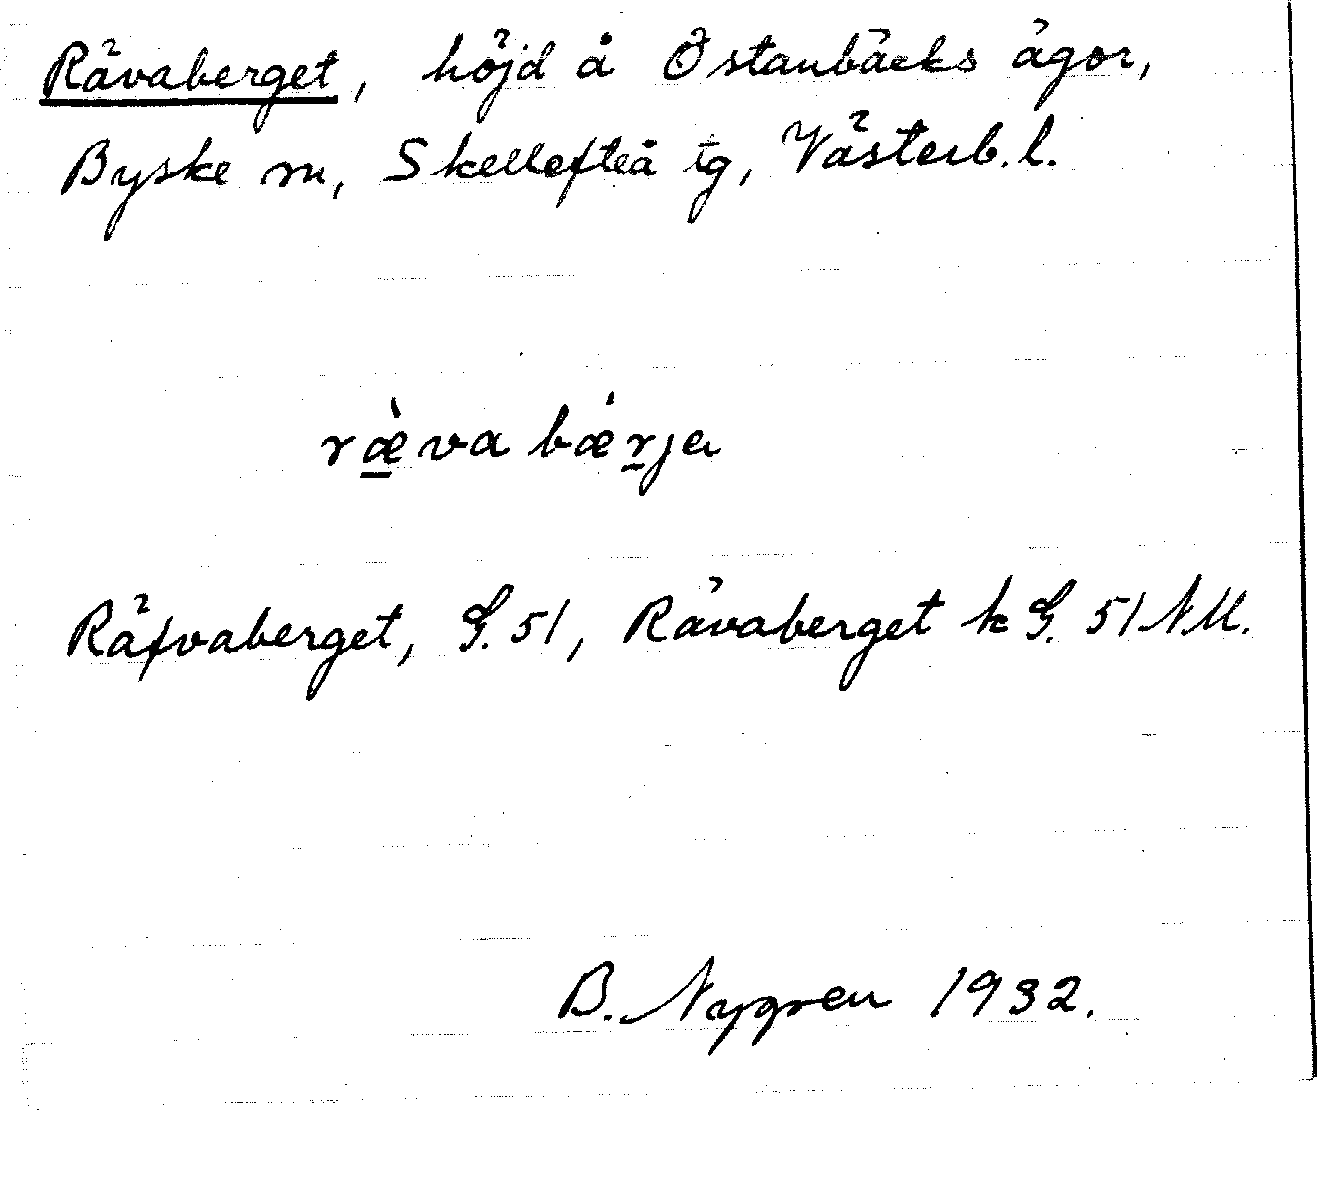 Rävaberget, höjd å Östanbäcks ägor,
Byske sn, Skellefteå tg, Västerb. l.
ræ̀va bǽrja
Räfvaberget, G. 51, Rävaberget k G. 51 NM.
B. Nygren 1932.